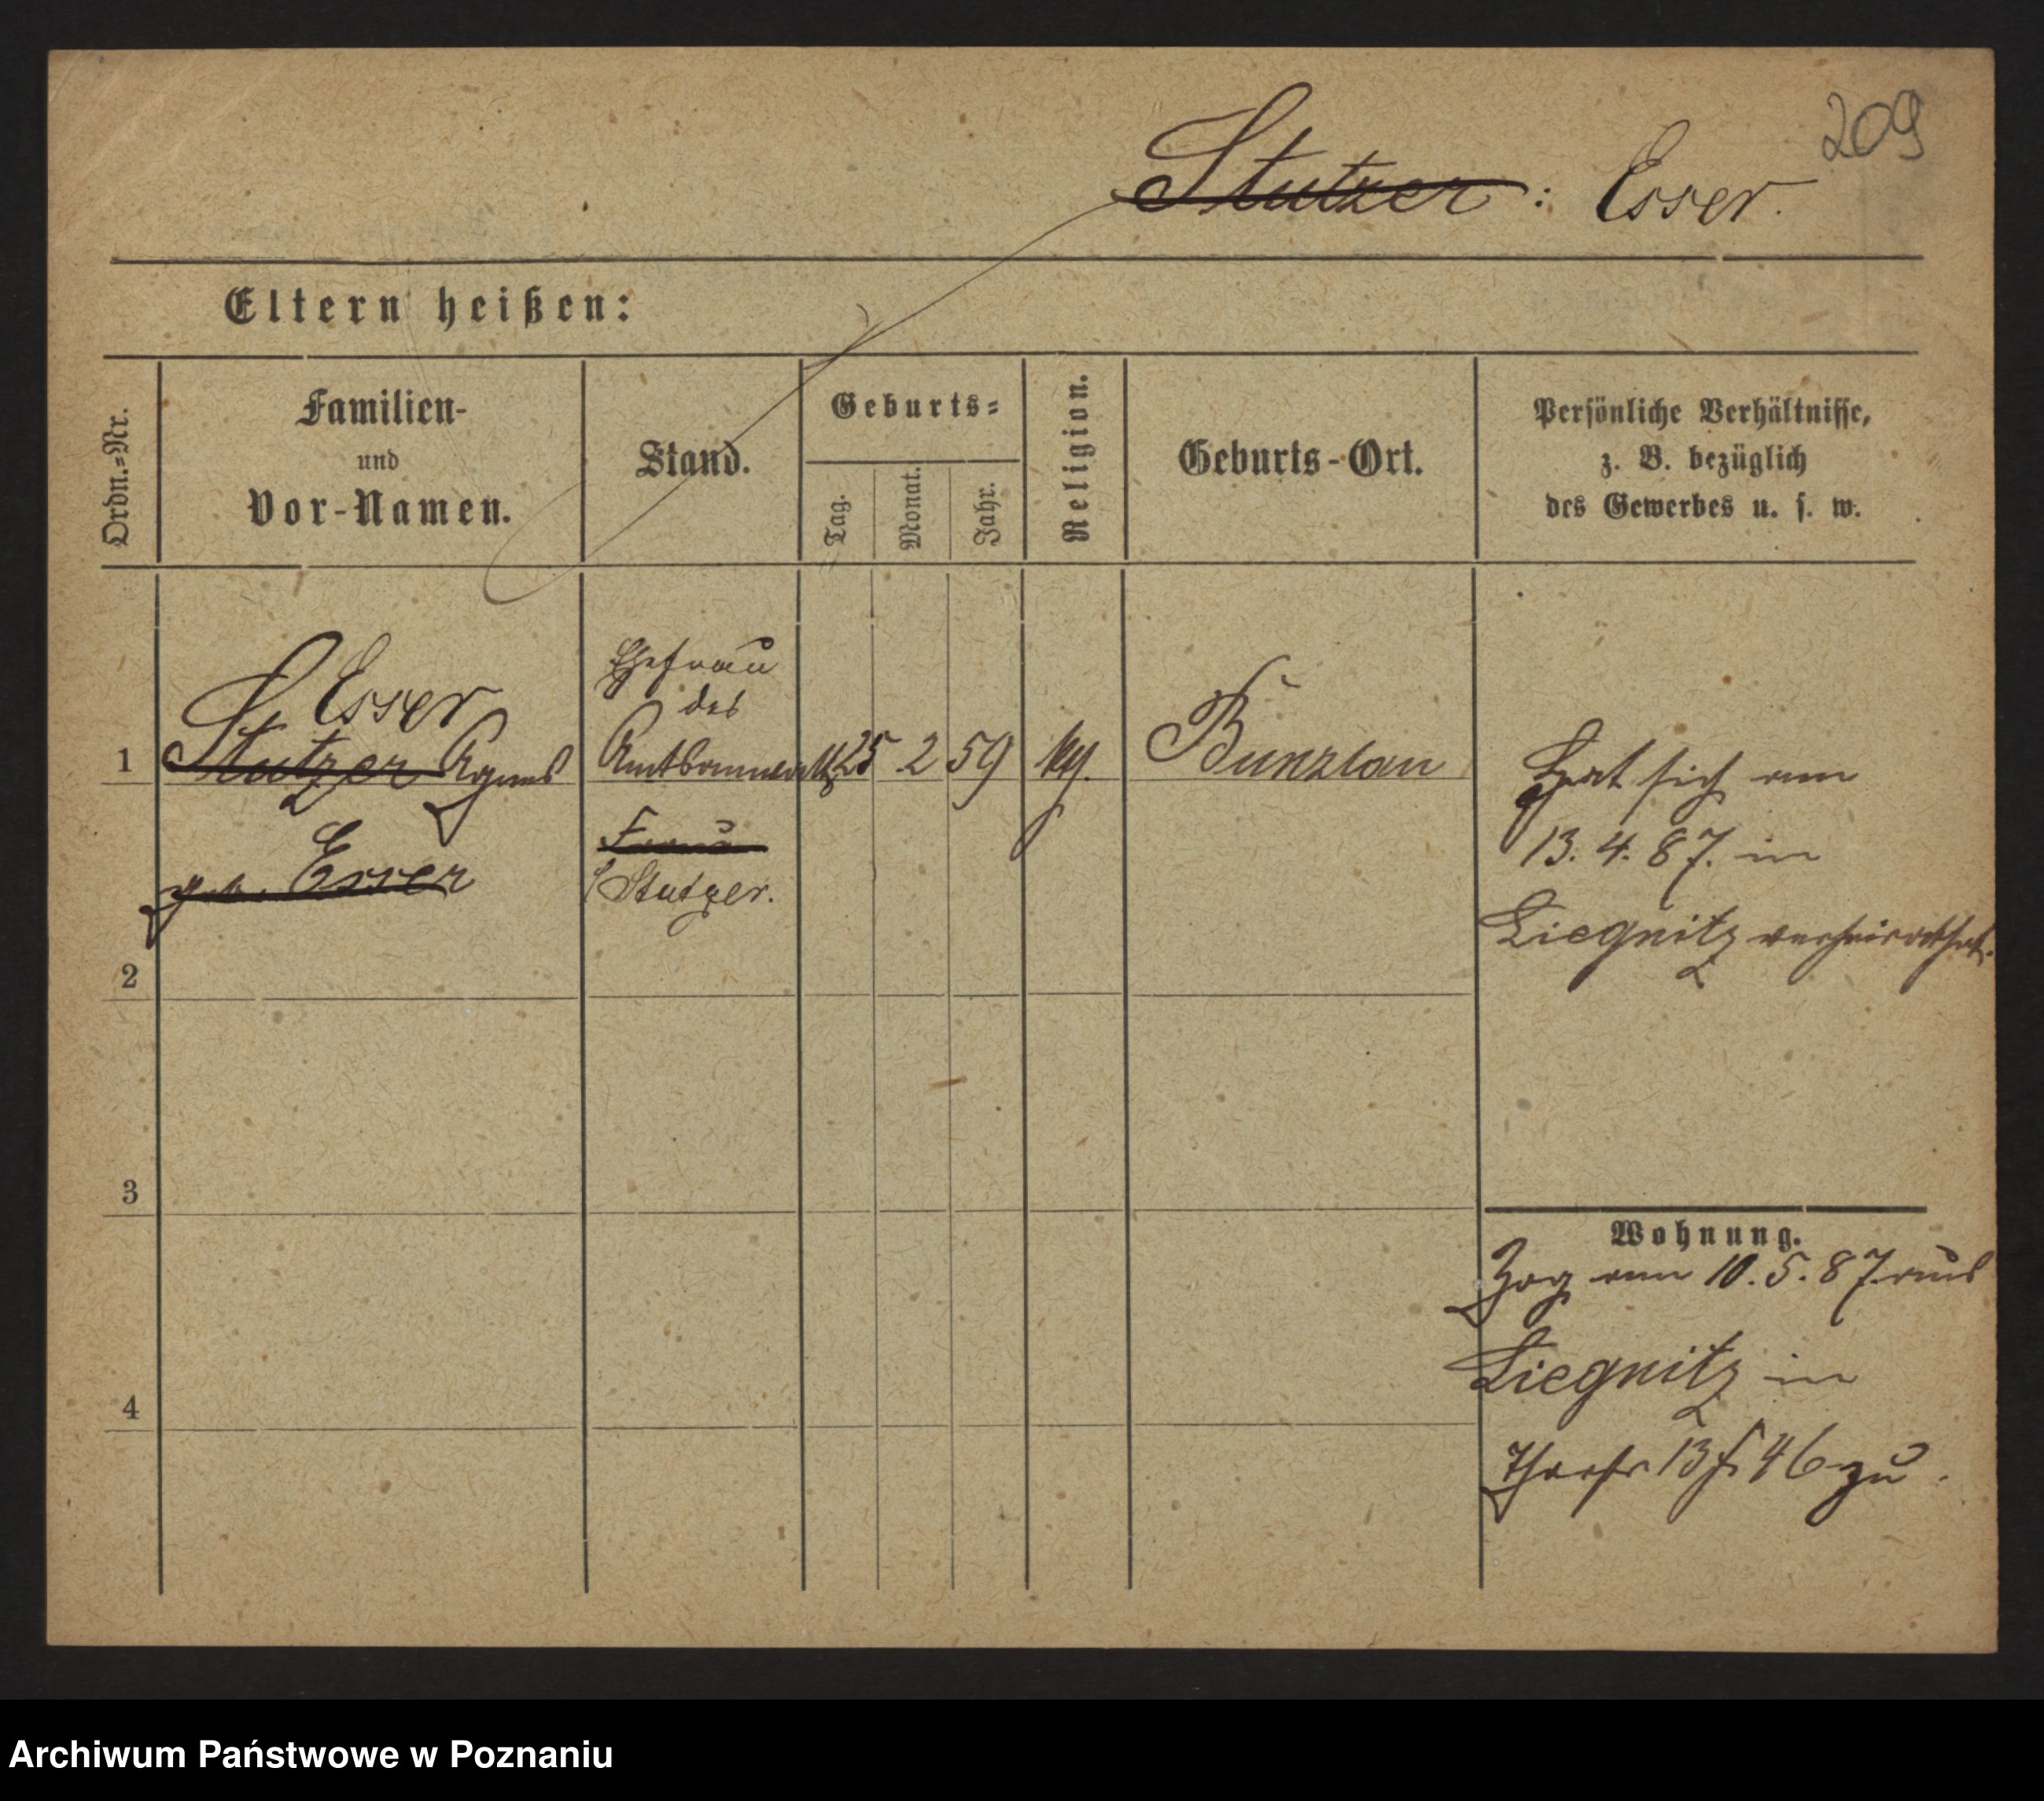 209
Stutzer : Esser.
Eltern heißen:
Ordn.=Nr.
Familien-
und
Vor-Namen.
Stand.
Geburts=
Tag.
Monat.
Jahr.
Religion.
Geburts-Ort.
Persönliche Verhältnisse,
z. B. bezüglich
des Gewerbes u. s. w.
Esser
1 Stutzer Agnes
geb. Esser
Ehefrau
des
Amtsanwalts
Frau
Stutzer.
25 2 59
Bunzlau
Hat sich am
13. 4. 87. in
Liegnitz verheirathet.
2
3
4
Wohnung.
Zog am 10. 5. 87. aus
Liegnitz in
46 zu
Archiwum Państwowe w Poznaniu